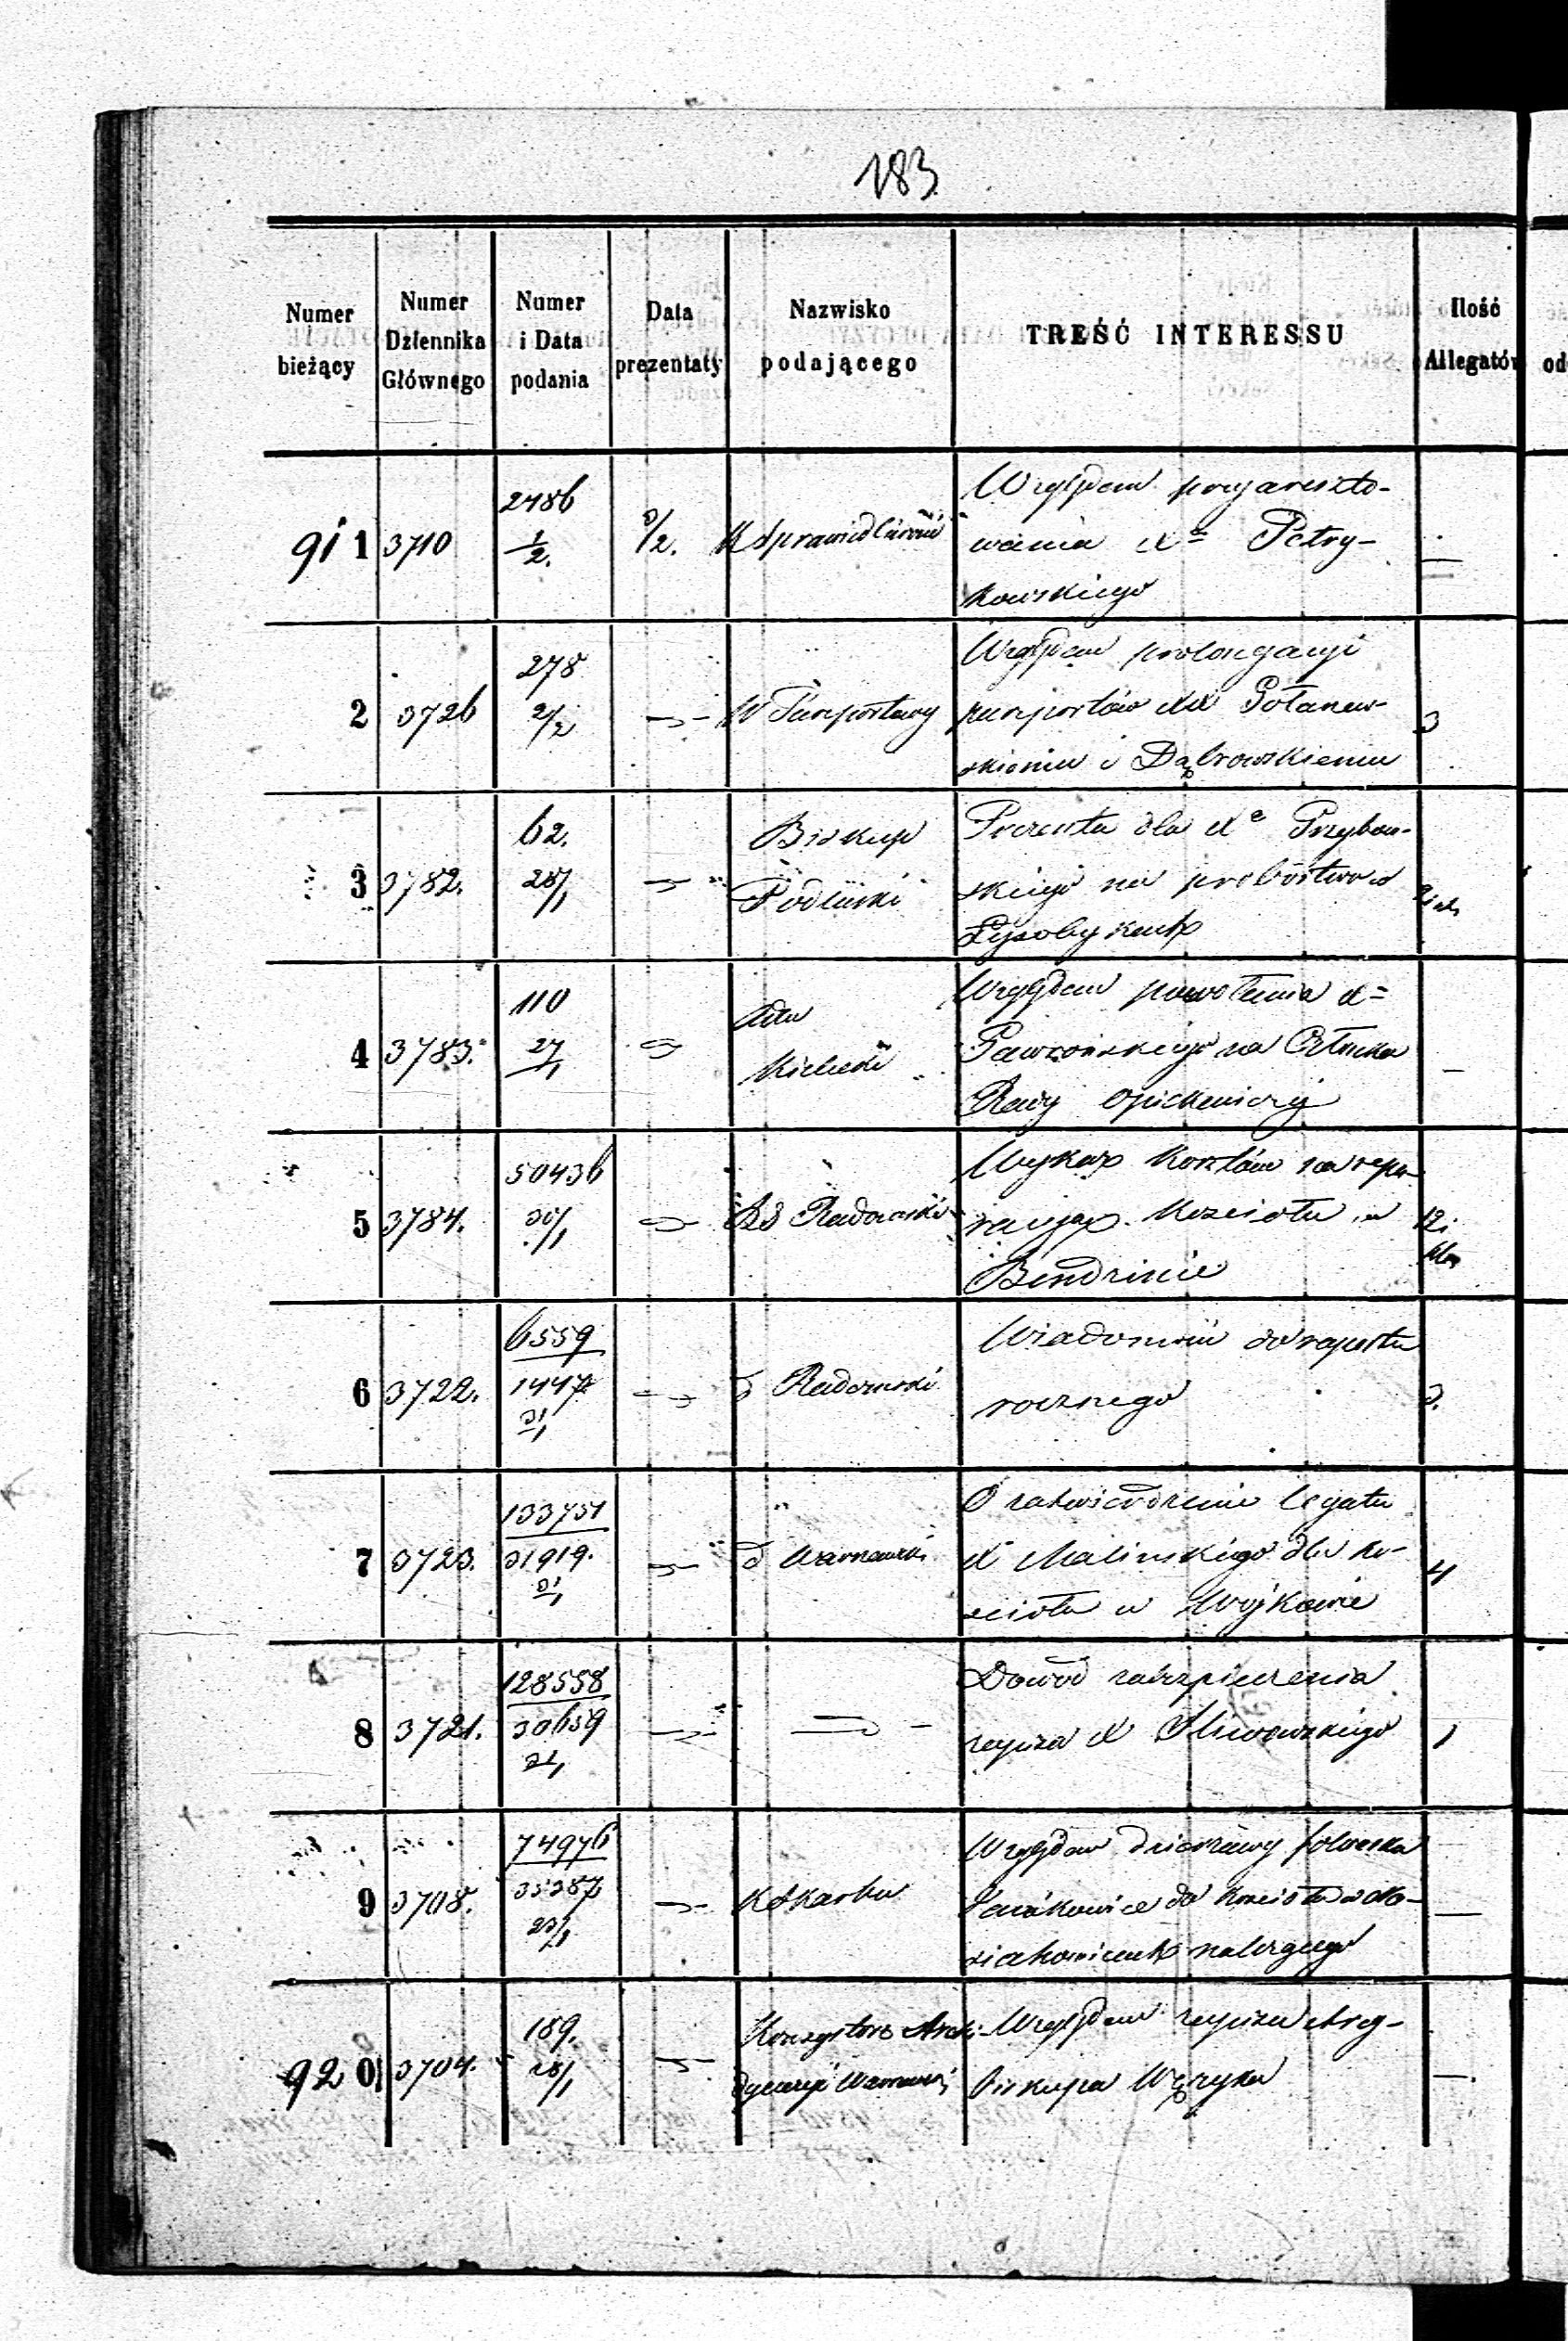 183
Numer bieżący | Numer Dziennika Głównego | Numer i Data podania | Data prezentaty | Nazwisko podającego | TREŚĆ INTERESSU | Ilość Allegatów
911 | 3710 | 2786 1/2. | 3/2. | K Sprawiedliwości | Względem przyareszto-
wania X Petry-
kowskiego | —
2 | 3726 | 278 2/2 | W Paszportowy | Względem prolongacyi
paszportów XX Gołanew-
skiemu i Dąbrowskiemu | 3
3 | 3782. | 62. 28/1 | Biskup
Podlaski | Prezenta dla Xa Przybow-
skiego na probostwo w
Łysobykach
4 | 3783. | 110 27/1 | Adm
Kielecki | Względem powołania X
Pawrońskiego na Członka
Rady Opiekuńczej | —
5 | 3784. | 50436 30/1 | Radomski | Wykaz kosztów na repa-
racyą Kościoła w
Bendzinie | 12 i
6 | 3722. | 6559 1447 31/1 | Radomski | Wiadomości do raportu
rocznego | 3.
7 | 3723. | 133751 31919. 31/1 | d Warszawski | O zatwierdzenie legatu
X Malinskiego dla ko-
ścioła w Wójkowie | 4
8 | 3721. | 128558 30659 31/1 | Dowód zabezpieczenia
zapisu X Śliwowskiego | 1
9 | 3708. | 74976 35287 23/1 | K Skarbu | Względem dzierżawy folwarku
do Kościoła w Mo-
należącego | —
920 | 3704. | 189. 28/1 | Konsystorz Archi-
dyecezyi Warszaws. | Względem zapisu Arcy-
biskupa Wężyka | —